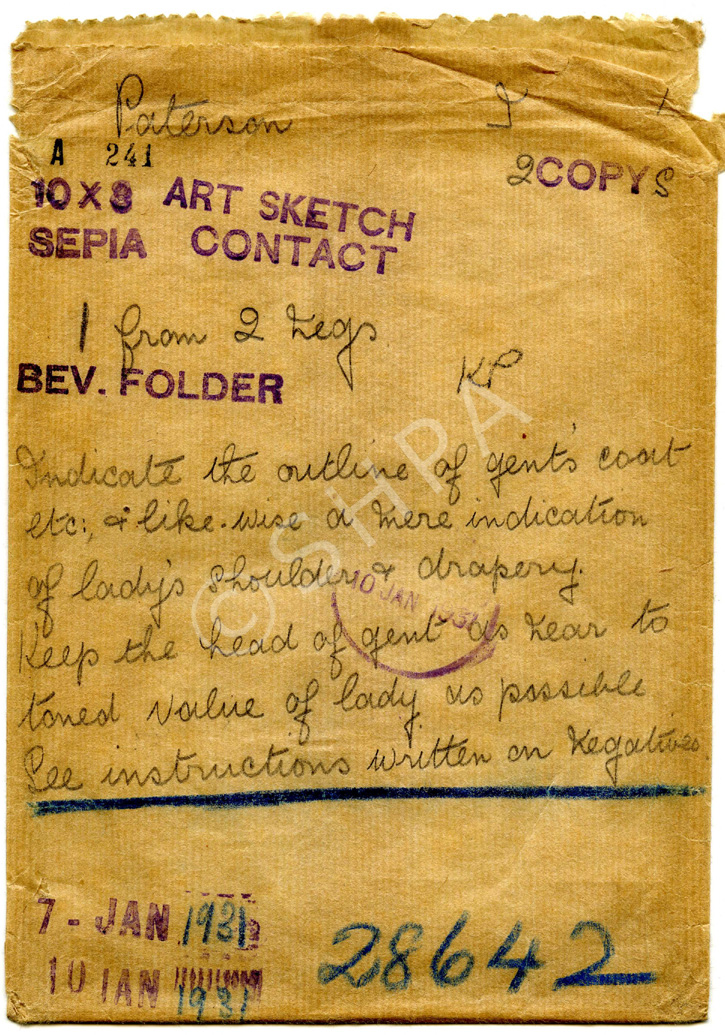 Paterson
A 241
2 COPYS
10 X 8 ART SKETCH
SEPIA CONTACT
1 from 2 Negs
BEV. FOLDER KP
Indicate the outline of gent's coat
etc:, & like-wise a mere indication
of lady's shoulder & drapery.
10 JAN 1931
Keep the head of gent as near to
toned value of lady as possible
See instructions written on Negatives
7 - JAN 1931
10 JAN 1931
28642
© SHPA